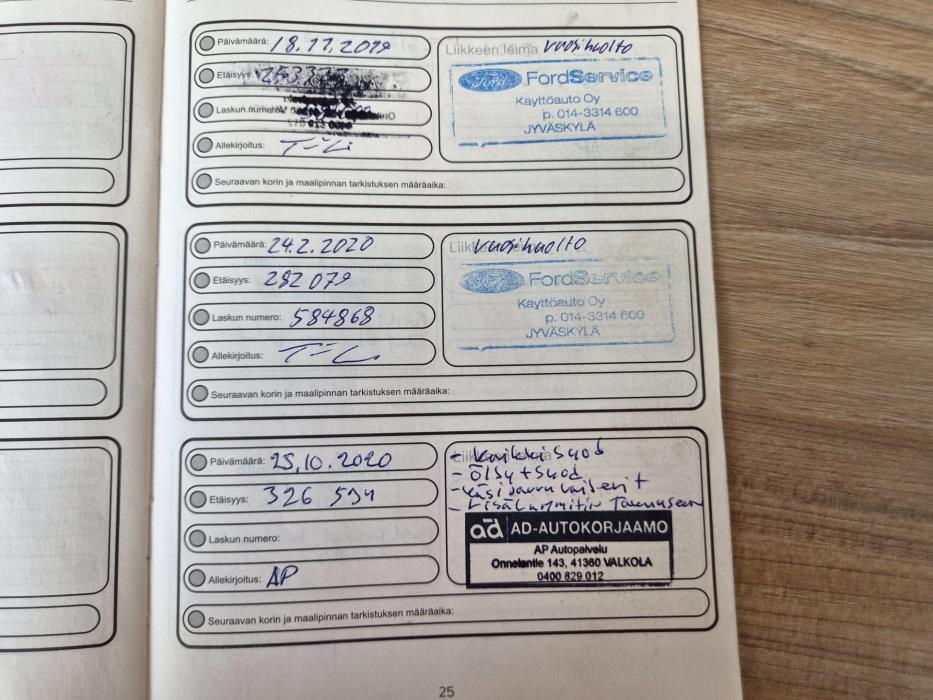 Päivämäärä: 18.11.2019
Liikkeen leima vuosihuolto
Etäisyys:
Ford FordService
Laskun numero:
Käyttöauto Oy
p. 014-3314 600
JYVÄSKYLÄ
Allekirjoitus:
Seuraavan korin ja maalipinnan tarkistuksen määräaika:
Päivämäärä: 24.2.2020
vuosihuolto
Etäisyys: 282 079
Ford FordService
Käyttöauto Oy
p. 014-3314 600
JYVÄSKYLÄ
Laskun numero: 584868
Allekirjoitus:
Seuraavan korin ja maalipinnan tarkistuksen määräaika:
Päivämäärä: 25.10.2020
- kaikki suod
- ölJy + suod
- käsijarru vaiserit
- Lisälämmitin Takuuseen
Etäisyys: 326 534
ad AD-AUTOKORJAAMO
AP Autopalvelu
Onnelantie 143, 41360 VALKOLA
0400 829 012
Laskun numero:
Allekirjoitus: AP
Seuraavan korin ja maalipinnan tarkistuksen määräaika:
25